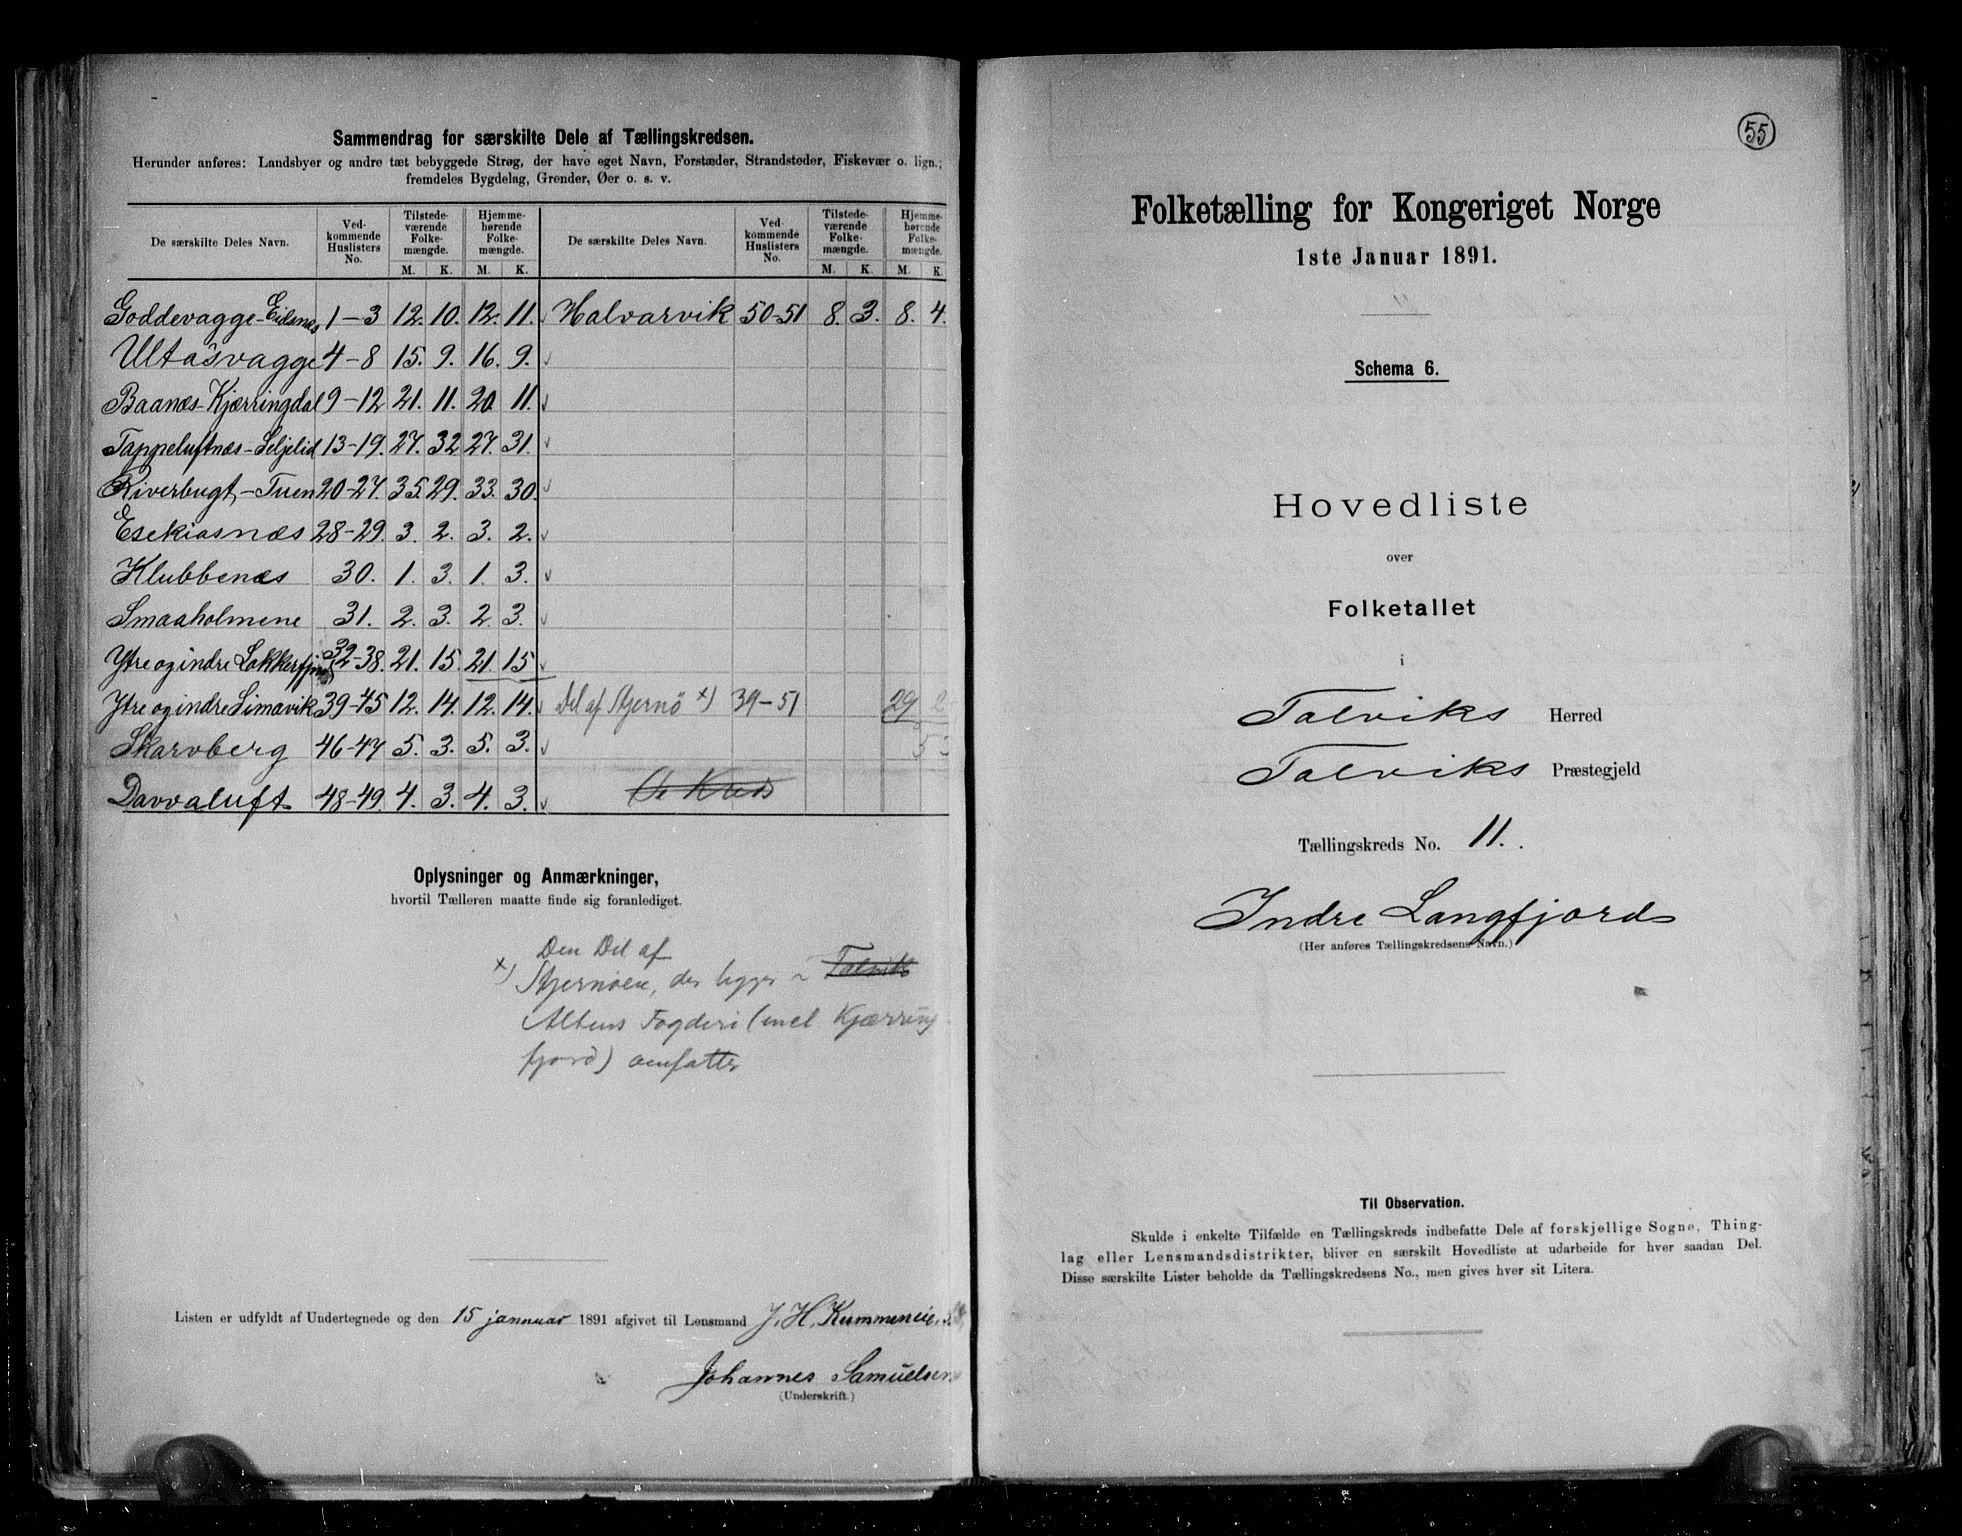 Sammendrag for særskilte Dele af Tællingskredsen.
Herunder anføres: Landsbyer og andre tæt bebyggede Strøg, der have eget Navn, Forstæder, Strandsteder, Fiskevær o. lign.;
fremdeles Bygdelag, Grender, Øer o. s. v.
De særskilte Deles Navn. Ved-kommende Huslisters No. Tilstede-værende Folke-mængde. Hjemme-hørende Folke-mængde. De særskilte Deles Navn. Ved-kommende Huslisters No. Tilstede-værende Folke-mængde. Hjemme-hørende Folke-mængde.
M. K. M. K. M. K. M. K.
Goddevagge-Eidsnes 1-3 12. 10. 12. 11. Halvarvik 50-51 8. 3. 8. 4.
Ultasvagge 4-8 15. 9. 16. 9.
Baanæs-Kjærringdal 9-12 21. 11. 20. 11.
Tappeluftnæs-Seljelid 13-19. 27. 32 27. 31.
Riverbugt-Tuen 20-27. 35. 29. 33. 30.
Esekiasnæs 28-29. 3. 2. 3. 2.
Klubbenæs 30. 1. 3. 1. 3.
Smaaholmene 31. 2. 3. 2. 3.
Ytre og indre Lokkerfjord 32-38. 21. 15. 21. 15
Ytre og indre Simavik 39-45 12. 14. 12. 14. Del af Stjernö x) 39-51 29
Skarvberg 46-47 5. 3. 5. 3.
Davvaluft 48-49. 4. 3. 4. 3.
Oplysninger og Anmærkninger,
hvortil Tælleren maatte finde sig foranlediget.
Den Del af
x) Stjernöen, der ligger i Talvik
Altens Fogderi (incl Kjærring
fjord) omfatter
Listen er udfyldt af Undertegnede og den 15 januar 1891 afgivet til Lensmand J. H. Kummeneie.
Johannes Samuelsen
(Underskrift.)
55
Folketælling for Kongeriget Norge
1ste Januar 1891.
Schema 6.
Hovedliste
over
Folketallet
i
Talviks Herred
Talviks Præstegjeld
Tællingskreds No. 11.
Indre Langfjord
(Her anføres Tællingskredsens Navn.)
Til Observation.
Skulde i enkelte Tilfælde en Tællingskreds indbefatte Dele af forskjellige Sogne, Thing-
lag eller Lensmandsdistrikter, bliver en særskilt Hovedliste at udarbeide for hver saadan Del.
Disse særskilte Lister beholde da Tællingskredsens No., men gives hver sit Litera.